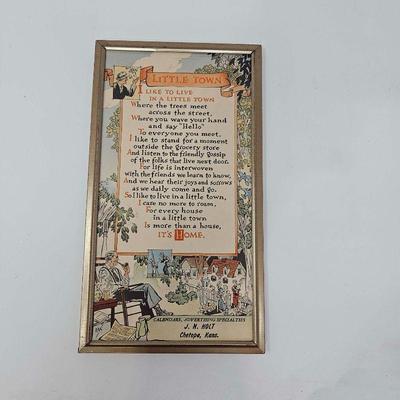 LITTLE TOWN
I LIKE TO LIVE
IN A LITTLE TOWN
Where the trees meet
across the street,
Where you wave your hand
and say "Hello"
To everyone you meet.
I like to stand for a moment
outside the grocery store
And listen to the friendly gossip
of the folks that live next door.
For life is interwoven
with the friends we learn to know,
And we hear their joys and sorrows
as we daily come and go.
So I like to live in a little town,
I care no more to roam,
For every house
in a little town
Is more than a house,
IT'S HOME.
CALENDARS, ADVERTISING SPECIALTIES
J. M. HOLT
Chetopa, Kans.